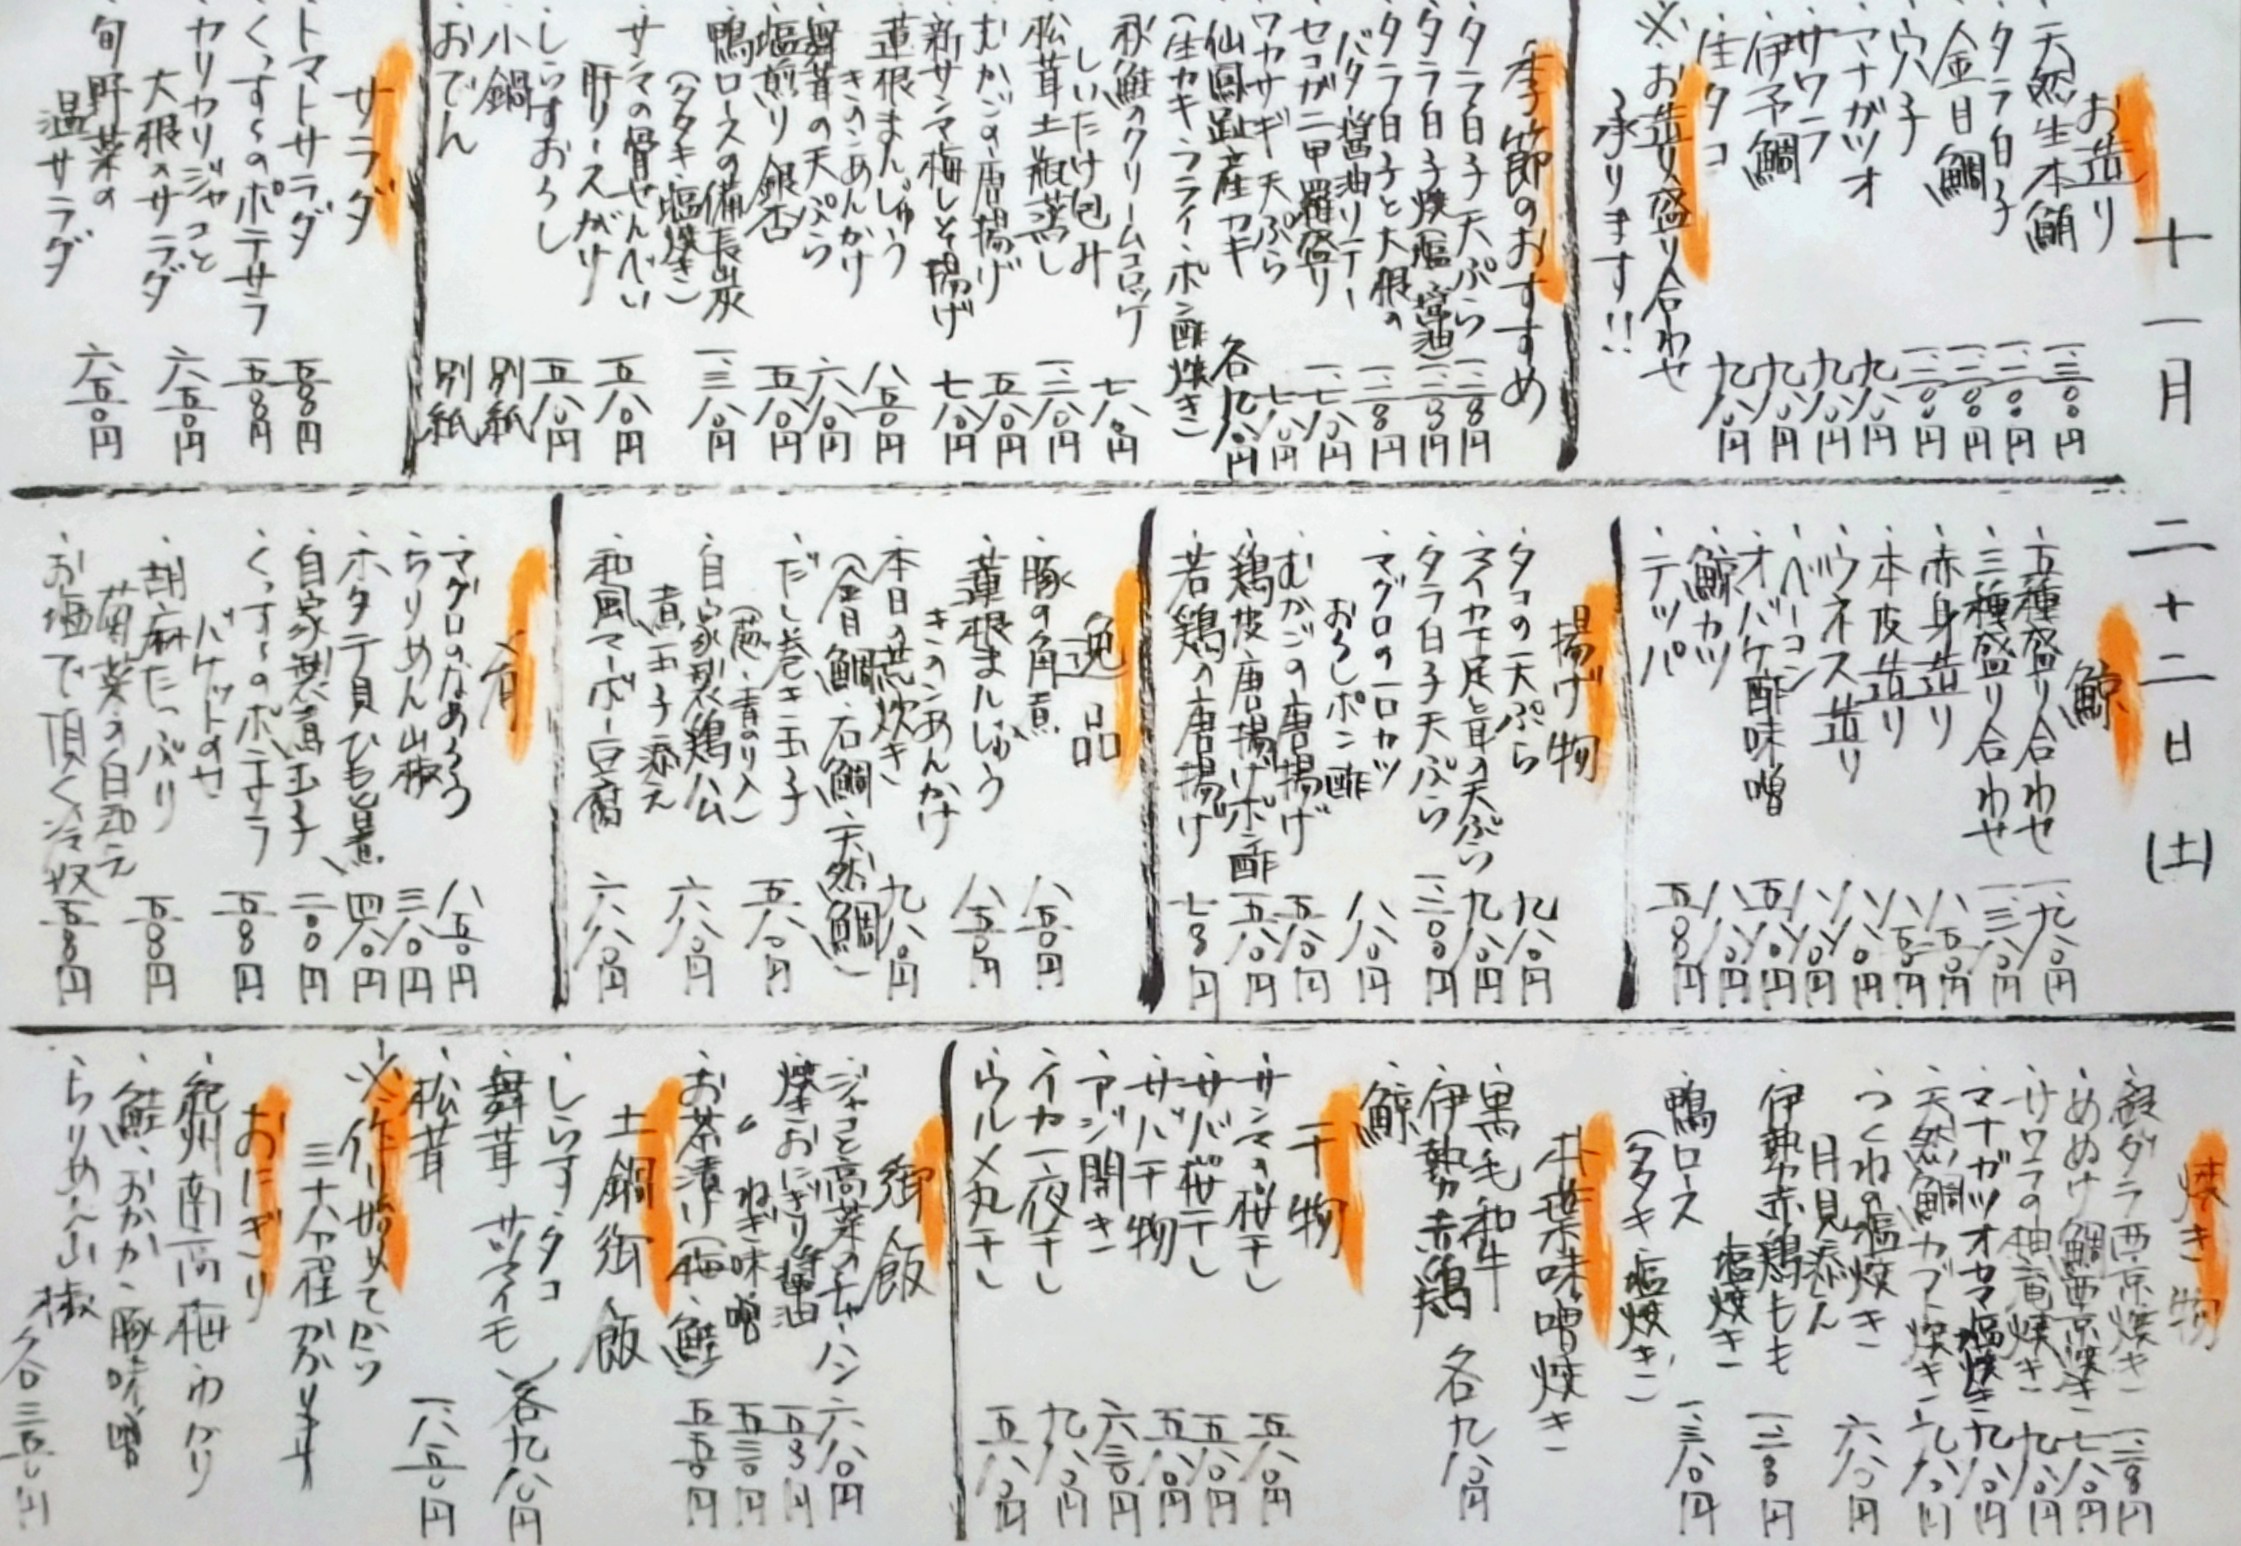 十一月二十二日(土)
お造り
・天然生本鮪 一、三〇〇円
・タラ白子 一、二〇〇円
・金目鯛 一、二〇〇円
・穴子 一、二〇〇円
・マナガツオ 九八〇円
・サワラ 九八〇円
・伊予鯛 九八〇円
・生タコ 九八〇円
※お造り盛り合わせ
承ります!!
季節のおすすめ
・タラ白子天ぷら 一、三〇〇円
・タラ白子焼(塩・醤油) 一、三〇〇円
・タラ白子と大根の
バター醤油ソテー 一、三〇〇円
・セコガニ甲羅盛り 一、七八〇円
・ワカサギ天ぷら 七八〇円
・仙鳳趾産カキ
(生カキ・フライ・ポン酢・焼き) 各九八〇円
・秋鮭のクリームコロッケ
しいたけ包み 七八〇円
・松茸土瓶蒸し 一、二八〇円
・むかごの唐揚げ 五八〇円
・新サンマ梅しそ揚げ 七八〇円
・蓮根まんじゅう
きのこあんかけ 八五〇円
・舞茸の天ぷら 六八〇円
・塩煎り銀杏 五八〇円
・鴨ロースの備長炭
(タタキ・塩焼き) 一、三八〇円
・サンマの骨せんべい
肝ソースがけ 五八〇円
・しらすおろし 五八〇円
・小鍋 別紙
・おでん 別紙
サラダ
・トマトサラダ 五八〇円
・くっす~のポテサラ 五八〇円
・カリカリジャコと
大根のサラダ 六五〇円
・旬野菜の
温サラダ 六五〇円
鯨
・五種盛り合わせ 一、九八〇円
・三種盛り合わせ 一、三八〇円
・赤身造り 八五〇円
・本皮造り 八五〇円
・ウネス造り 八八〇円
・ベーコン 八八〇円
・オバケ酢味噌 五八〇円
・鯨カツ 八八〇円
・テッパ 五八〇円
揚げ物
・タコの天ぷら 九八〇円
・マイカ下足と茸の天ぷら 九八〇円
・タラ白子天ぷら 一、三〇〇円
・マグロの一口カツ
おろしポン酢 八八〇円
・むかごの唐揚げ 五八〇円
・鶏皮唐揚げポン酢 五八〇円
・若鶏の唐揚げ 七八〇円
逸品
・豚の角煮 八五〇円
・蓮根まんじゅう
きのこあんかけ 八五〇円
・本日の荒炊き
(金目鯛・石鯛・天然鯛) 九八〇円
・だし巻き玉子
(葱・青のり入) 五八〇円
・自家製鶏ハム
煮玉子添え 六八〇円
・和風マーボー豆腐 六八〇円
〆肴
・マグロのなめろう 八五〇円
・ちりめん山椒 三八〇円
・ホタテ貝ひも旨煮 四八〇円
・自家製煮玉子 二〇〇円
・くっす~のポテサラ
バケットのせ 五八〇円
・胡麻たっぷり
菊菜の白和え 五八〇円
・お塩で頂く冷奴 五八〇円
焼き物
・銀ダラ西京焼き 一、三八〇円
・めぬけ鯛西京焼き 一、七八〇円
・サワラの柚庵焼き 九八〇円
・マナガツオカマ塩焼き 九八〇円
・天然鯛カブト焼き 九八〇円
・つくねの塩焼き
月見添え 六八〇円
・伊勢赤鶏もも
塩焼き 一、三八〇円
・鴨ロース
(タタキ・塩焼き) 一、三八〇円
朴葉味噌焼き
・黒毛和牛
・伊勢赤鶏
・鯨 各九八〇円
干物
・サンマの桜干し 五八〇円
・サバ桜干し 五八〇円
・サバ干物 五八〇円
・アジ開き 六三〇円
・イカ一夜干し 九八〇円
・ウルメ丸干し 五八〇円
御飯
・ジャコと高菜のチャーハン 六八〇円
・焼きおにぎり醤油 五三〇円
・〃 ねぎ味噌 五三〇円
・お茶漬け(梅・鮭) 五五〇円
土鍋御飯
・しらす・タコ
・舞茸・サツマイモ 各九八〇円
・松茸 一、八五〇円
※作り始めてから
三十八分程かかります
おにぎり
・紀州南高梅・わかり
・鮭・おかか・豚味噌
・ちりめん山椒 各三五〇円